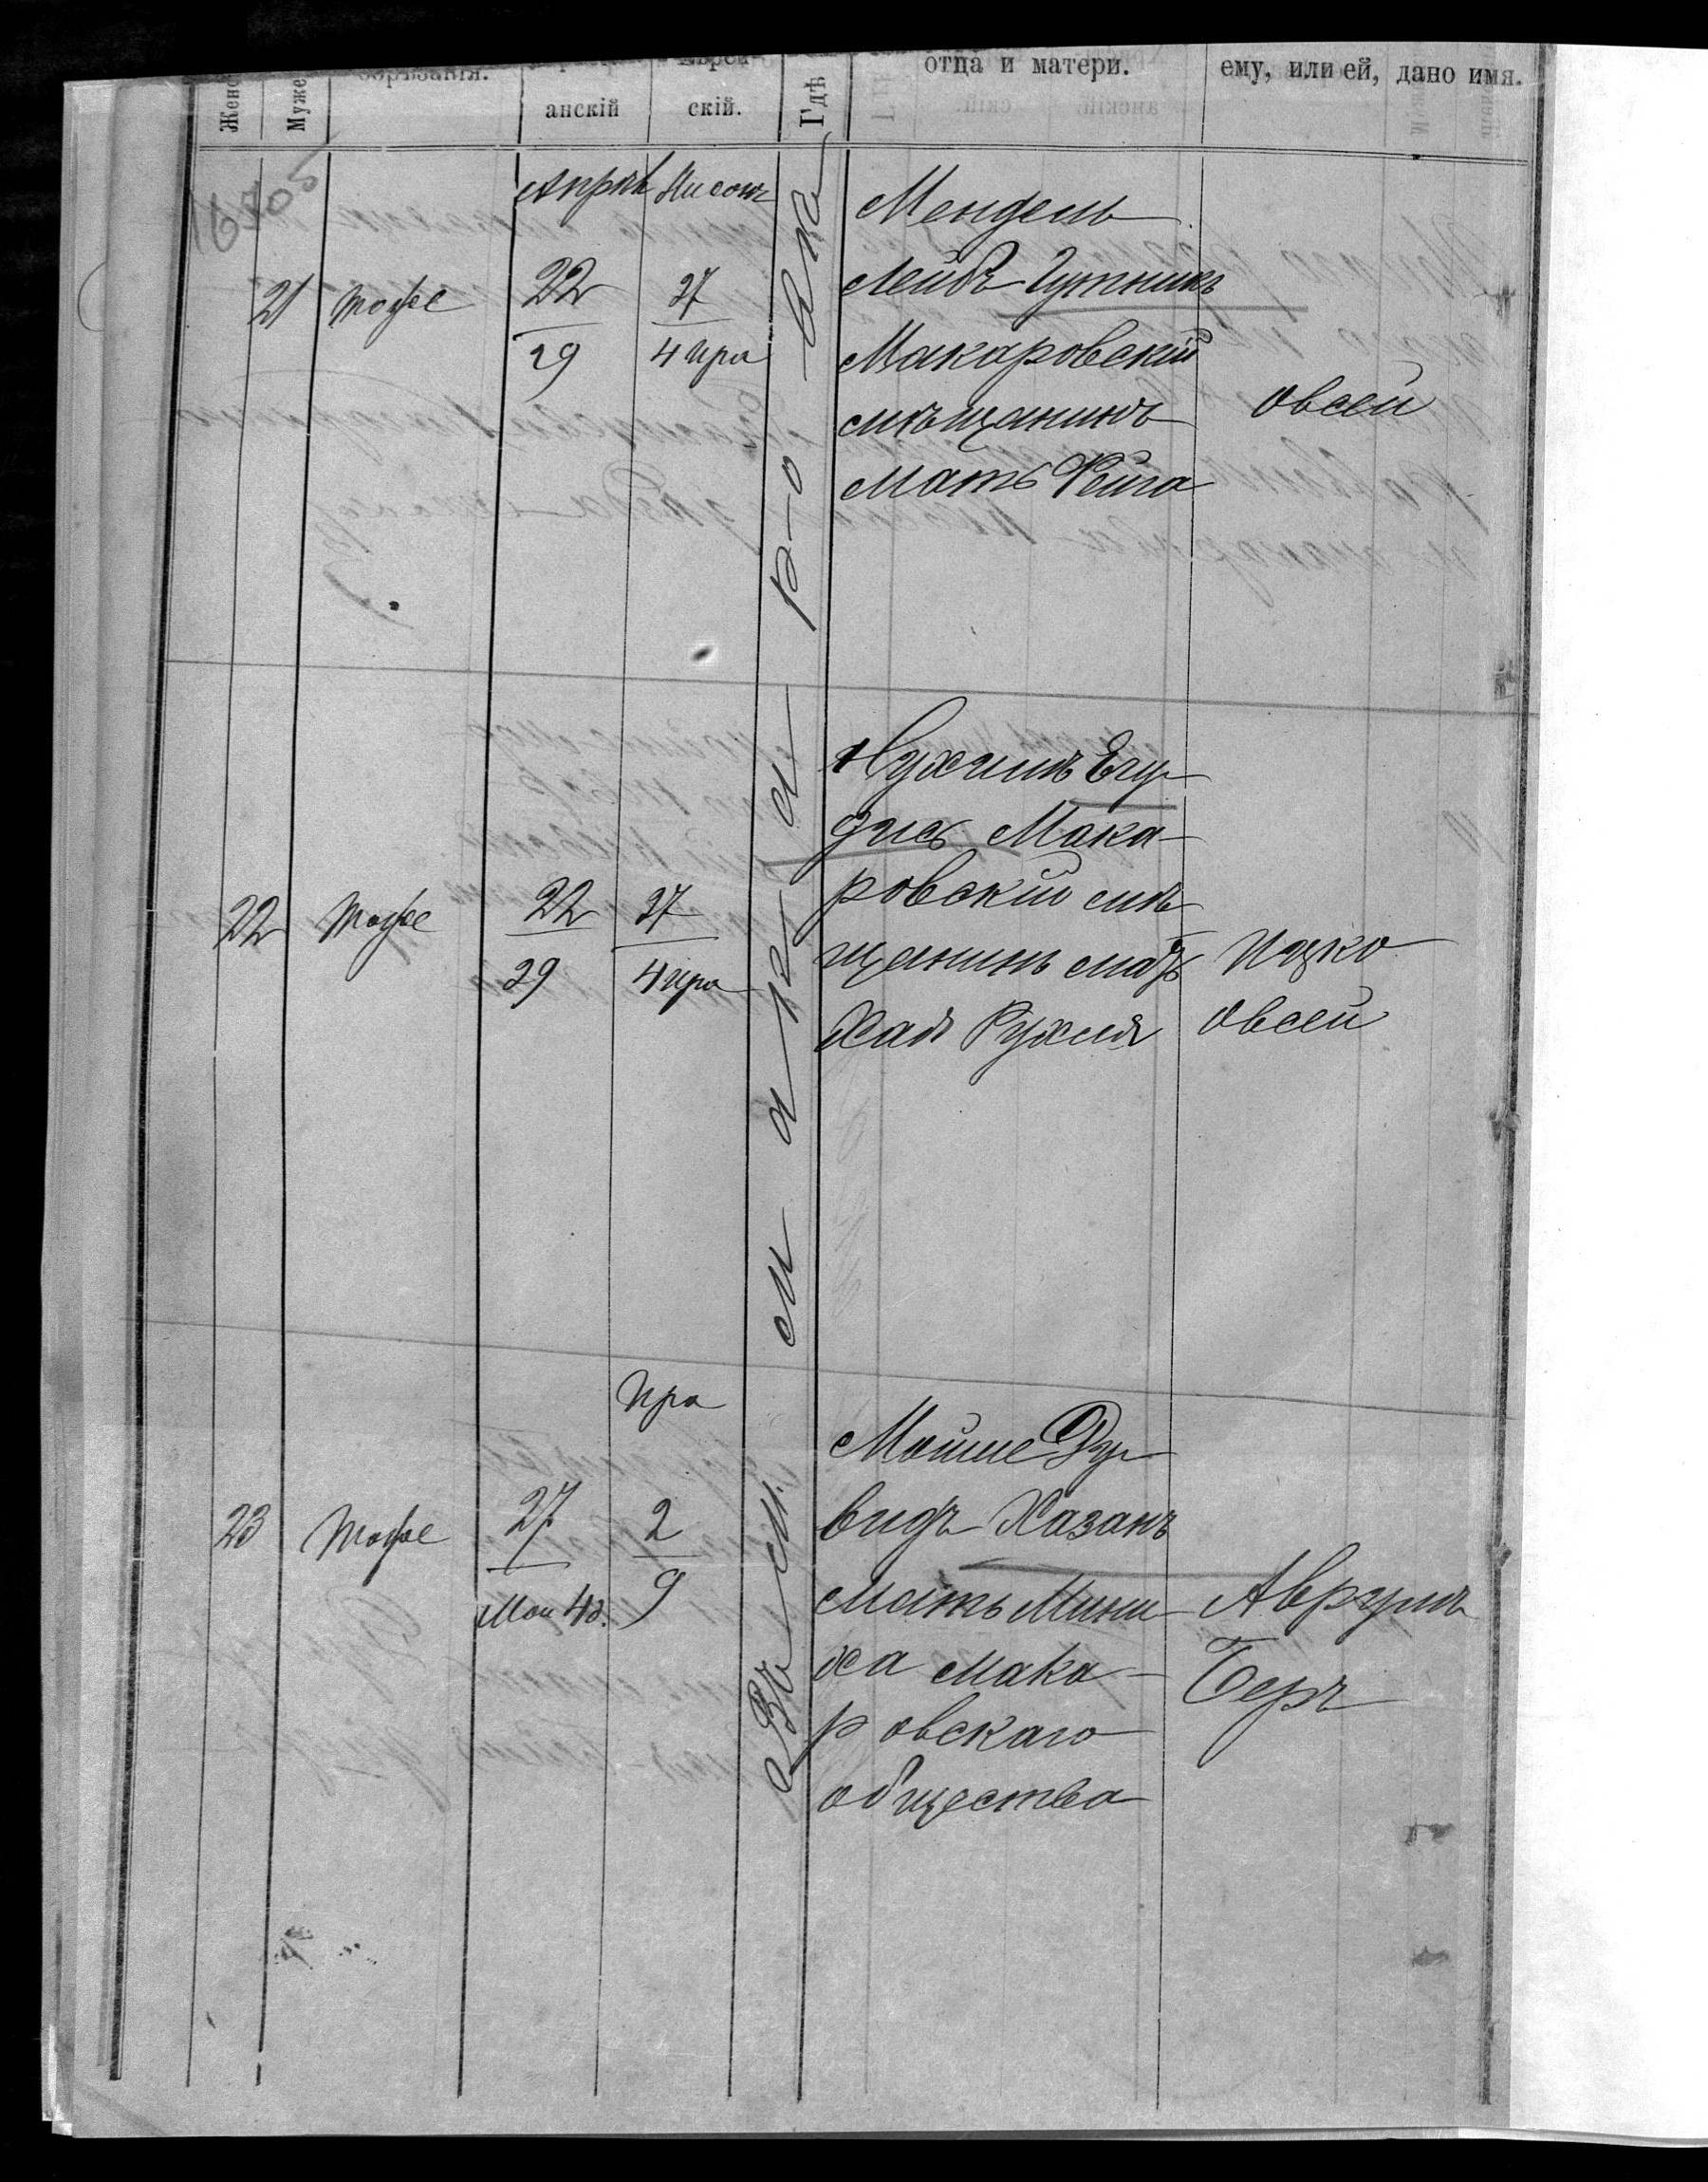 Женс
Муже
обрѣзанія.
анскій
скій.
Гдѣ
отца и матери.
ему, или ей, дано имя.
Апрѣл Нисонъ
21 тоже 22 27
29 4 Ира
Мендель
Лейбъ Гутникъ
Макаровскій
мѣщанинъ
Мать Фейга
Овсей
22 тоже 22 27
29 4 Ира
Нухимъ Егу-
дисъ Мака-
ровскій мѣ-
щанинъ мать
Хая Рухля
Ицко
Овсей
Ира
23 тоже 27 2
Мая 4д. 9
Мойше Ду-
видъ Хазанъ
Мать Мини-
ха Мака-
ровскаго
общества
Аврумъ
Беръ
Въ м. Макаровѣ